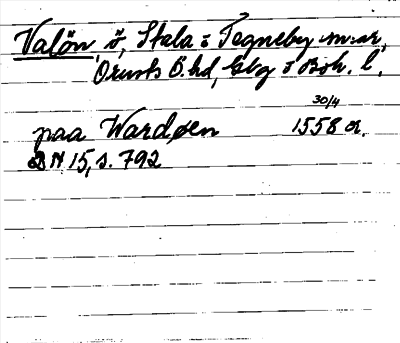 Valön ö, Stala o Tegneby sn:ar,
Orusts V. hd, Gbg o Boh. l.
30/4
paa Wardøen 1558 or.
DN 15, s. 792